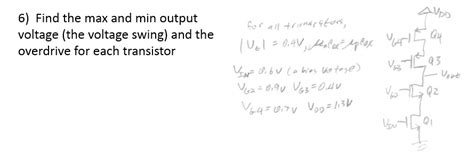 6) Find the max and min output
voltage (the voltage swing) and the
overdrive for each transistor
for all transistors,
|Vt| = 0.4V, μnCox = μpCox
VIN = 0.6V (a bias voltage)
VG2 = 0.9V VG3 = 0.4V
VG4 = 0.7V VDD = 1.3V
VDD
VG4 Q4
VG3 Q3
Vout
VG2 Q2
VIN Q1